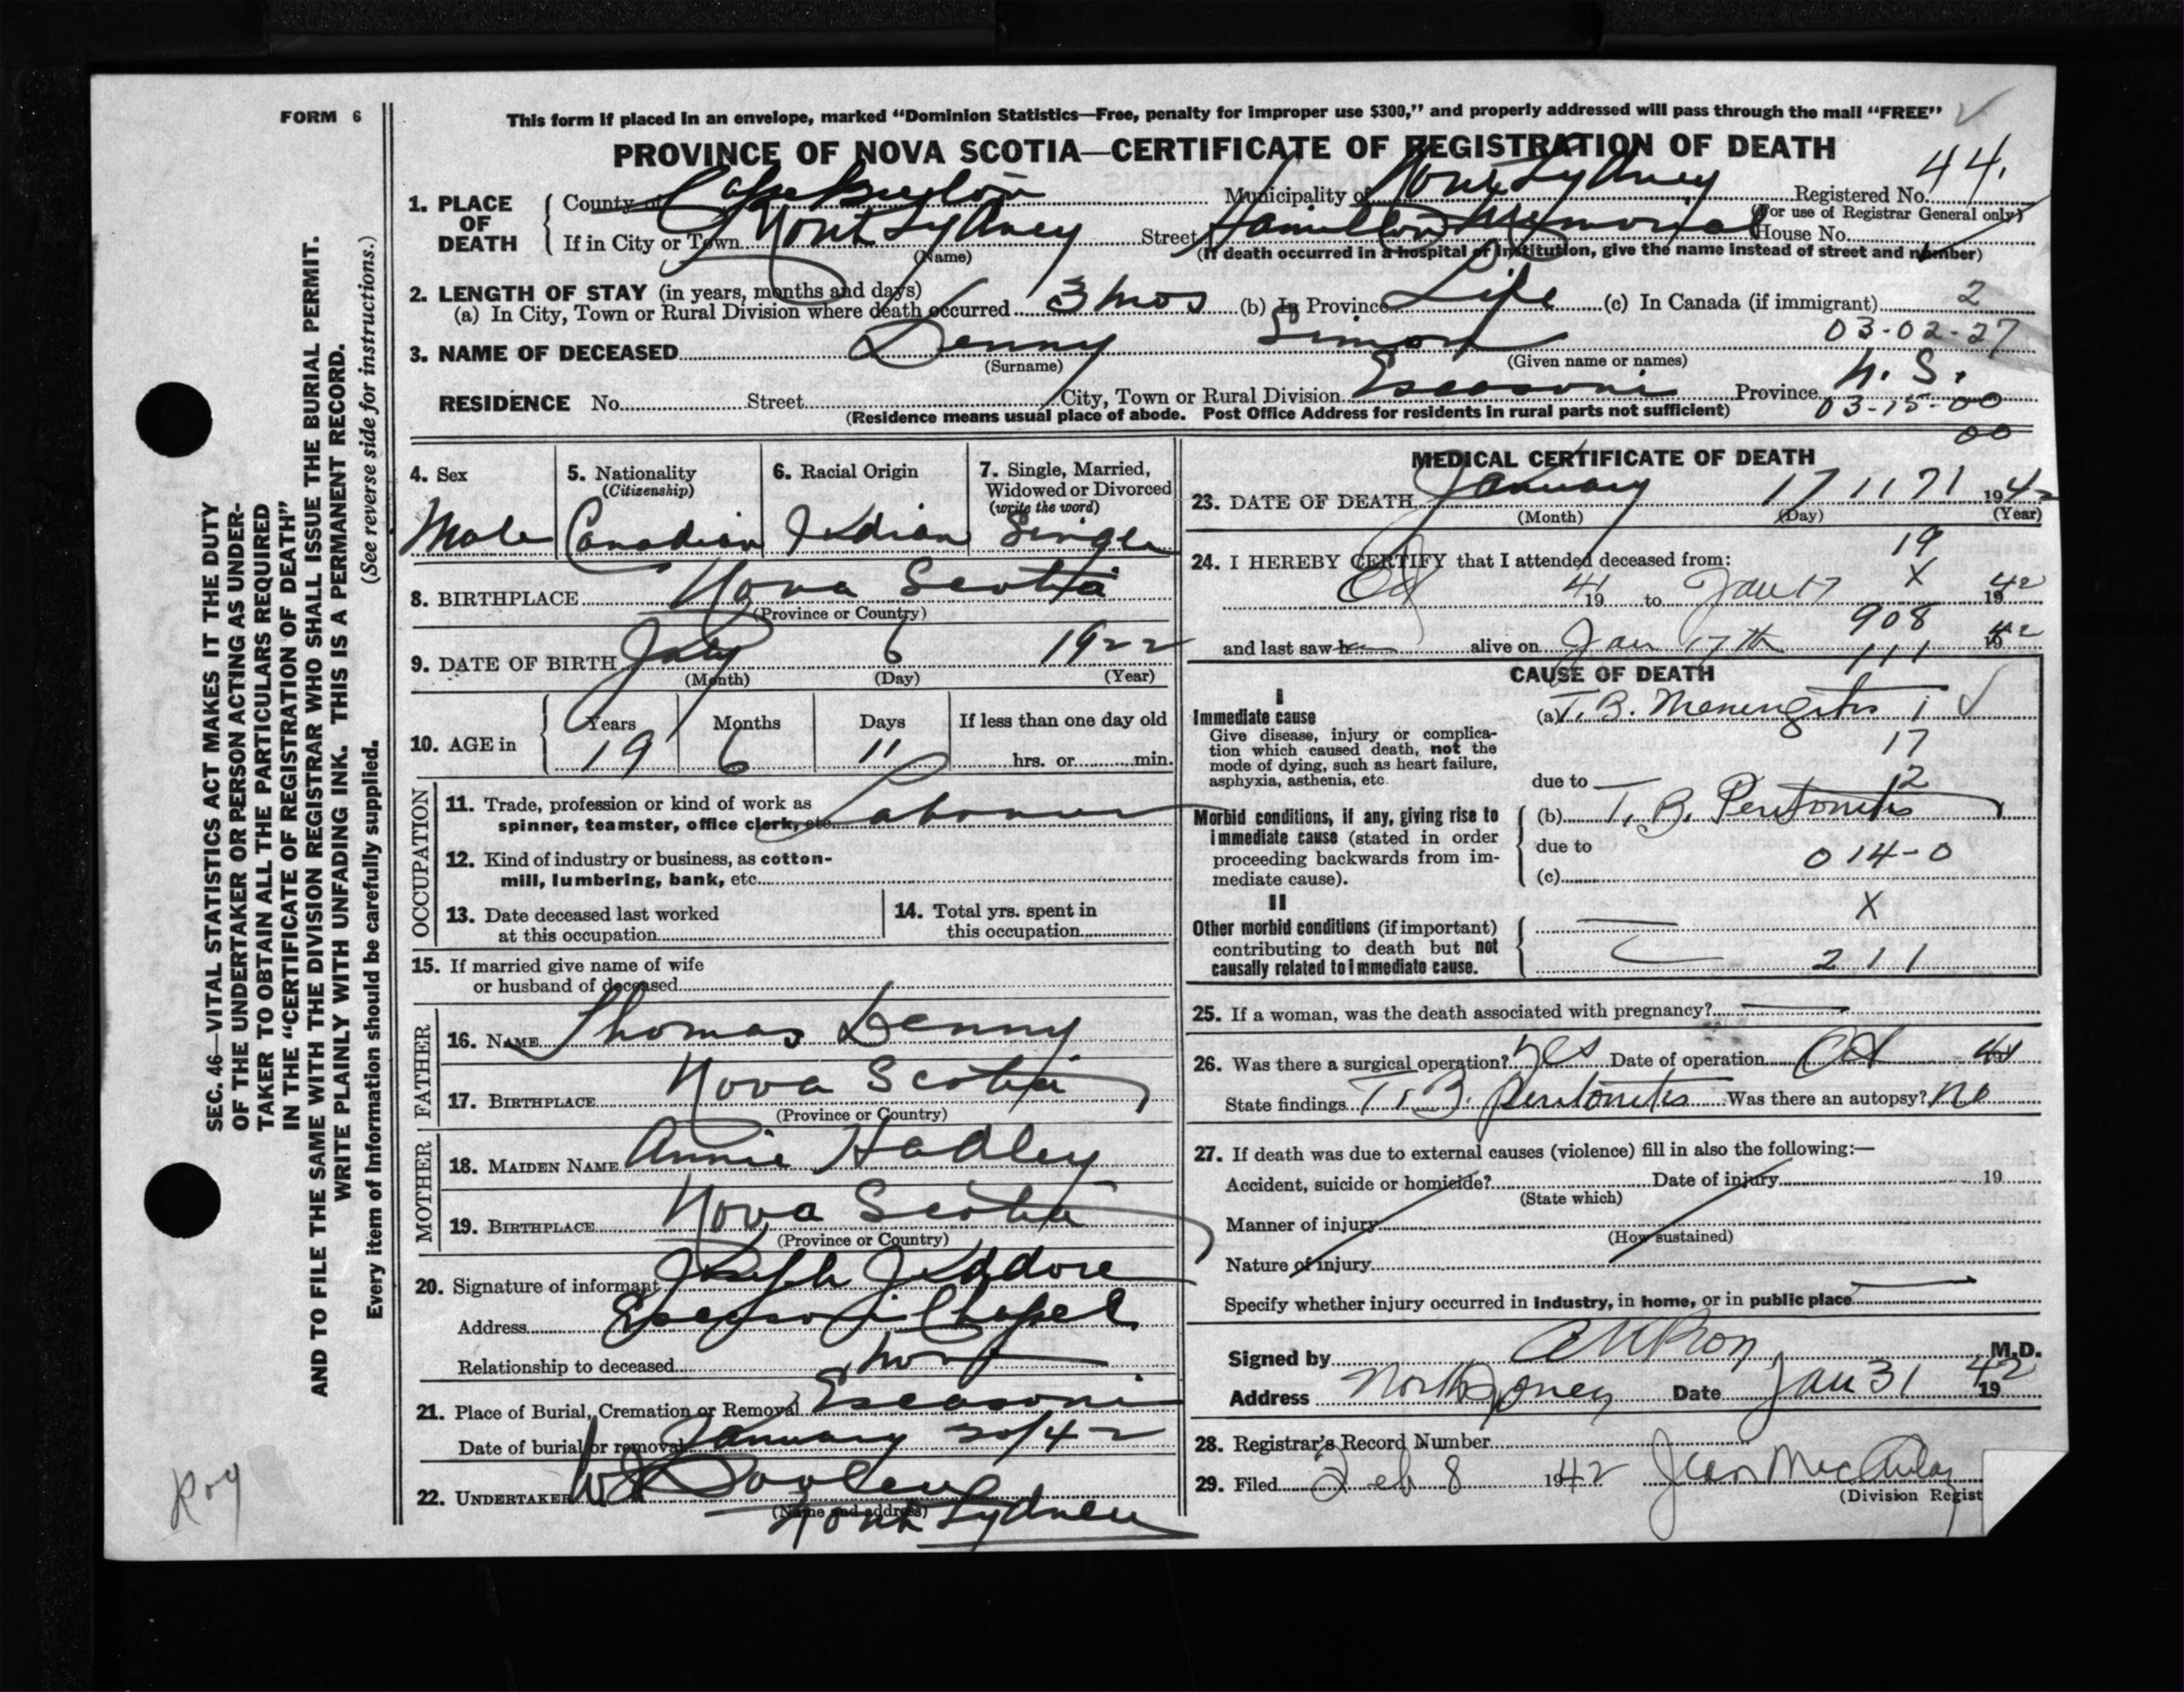 FORM 6
This form if placed in an envelope, marked "Dominion Statistics—Free, penalty for improper use $300," and properly addressed will pass through the mail "FREE"
PROVINCE OF NOVA SCOTIA—CERTIFICATE OF REGISTRATION OF DEATH
44.
1. PLACE OF DEATH
County of Cape Breton Municipality of North Sydney Registered No.
(For use of Registrar General only)
If in City or Town North Sydney Street Hamilton Memorial House No.
(Name) (If death occurred in a hospital or institution, give the name instead of street and number)
2. LENGTH OF STAY (in years, months and days)
(a) In City, Town or Rural Division where death occurred 3 mos (b) In Province Life (c) In Canada (if immigrant) 2
03-02-27
3. NAME OF DECEASED Denny Simon
(Surname) (Given name or names)
RESIDENCE No. Street City, Town or Rural Division Escasoni Province N. S.
03-15-00
(Residence means usual place of abode. Post Office Address for residents in rural parts not sufficient)
00
4. Sex Male
5. Nationality (Citizenship) Canadian
6. Racial Origin Indian
7. Single, Married, Widowed or Divorced (write the word) Single
8. BIRTHPLACE Nova Scotia
(Province or Country)
9. DATE OF BIRTH July 6 1922
(Month) (Day) (Year)
10. AGE in
Years Months Days If less than one day old
19 6 11 hrs. or min.
OCCUPATION
11. Trade, profession or kind of work as
spinner, teamster, office clerk, etc. Labourer
12. Kind of industry or business, as cotton-
mill, lumbering, bank, etc.
13. Date deceased last worked
at this occupation
14. Total yrs. spent in
this occupation
15. If married give name of wife
or husband of deceased
FATHER
16. NAME Thomas Denny
17. BIRTHPLACE Nova Scotia
(Province or Country)
MOTHER
18. MAIDEN NAME Annie Hadley
19. BIRTHPLACE Nova Scotia
(Province or Country)
20. Signature of informant Joseph Jeddore
Address Chapel
Relationship to deceased
21. Place of Burial, Cremation or Removal Escasoni
Date of burial or removal January 20/42
22. UNDERTAKER
(Name and address)
North Sydney
MEDICAL CERTIFICATE OF DEATH
23. DATE OF DEATH January 17 1171 1942
(Month) (Day) (Year)
19
24. I HEREBY CERTIFY that I attended deceased from:
X
Oct 1941 to Jan 17 1942
908
and last saw him alive on Jan 17th 1942
111
CAUSE OF DEATH
I
Immediate cause
Give disease, injury or complica-
tion which caused death, not the
mode of dying, such as heart failure,
asphyxia, asthenia, etc.
(a) T. B. Meningitis 1
17
due to
12
Morbid conditions, if any, giving rise to
immediate cause (stated in order
proceeding backwards from im-
mediate cause).
(b) T. B. Peritonitis
due to
014-0
(c)
II
X
Other morbid conditions (if important)
contributing to death but not
causally related to immediate cause.
211
25. If a woman, was the death associated with pregnancy?
26. Was there a surgical operation? Yes Date of operation Oct 41
State findings T. B. Peritonitis Was there an autopsy? No
27. If death was due to external causes (violence) fill in also the following:—
Accident, suicide or homicide? Date of injury 19
(State which)
Manner of injury
(How sustained)
Nature of injury
Specify whether injury occurred in industry, in home, or in public place
Signed by M.D.
Address North Sydney Date Jan 31 1942
28. Registrar's Record Number
29. Filed Feb 8 1942 Jean MacAulay
(Division Regist
SEC. 46—VITAL STATISTICS ACT MAKES IT THE DUTY
OF THE UNDERTAKER OR PERSON ACTING AS UNDER-
TAKER TO OBTAIN ALL THE PARTICULARS REQUIRED
IN THE "CERTIFICATE OF REGISTRATION OF DEATH"
AND TO FILE THE SAME WITH THE DIVISION REGISTRAR WHO SHALL ISSUE THE BURIAL PERMIT.
WRITE PLAINLY WITH UNFADING INK. THIS IS A PERMANENT RECORD.
(See reverse side for instructions.)
Every item of information should be carefully supplied.
Roy